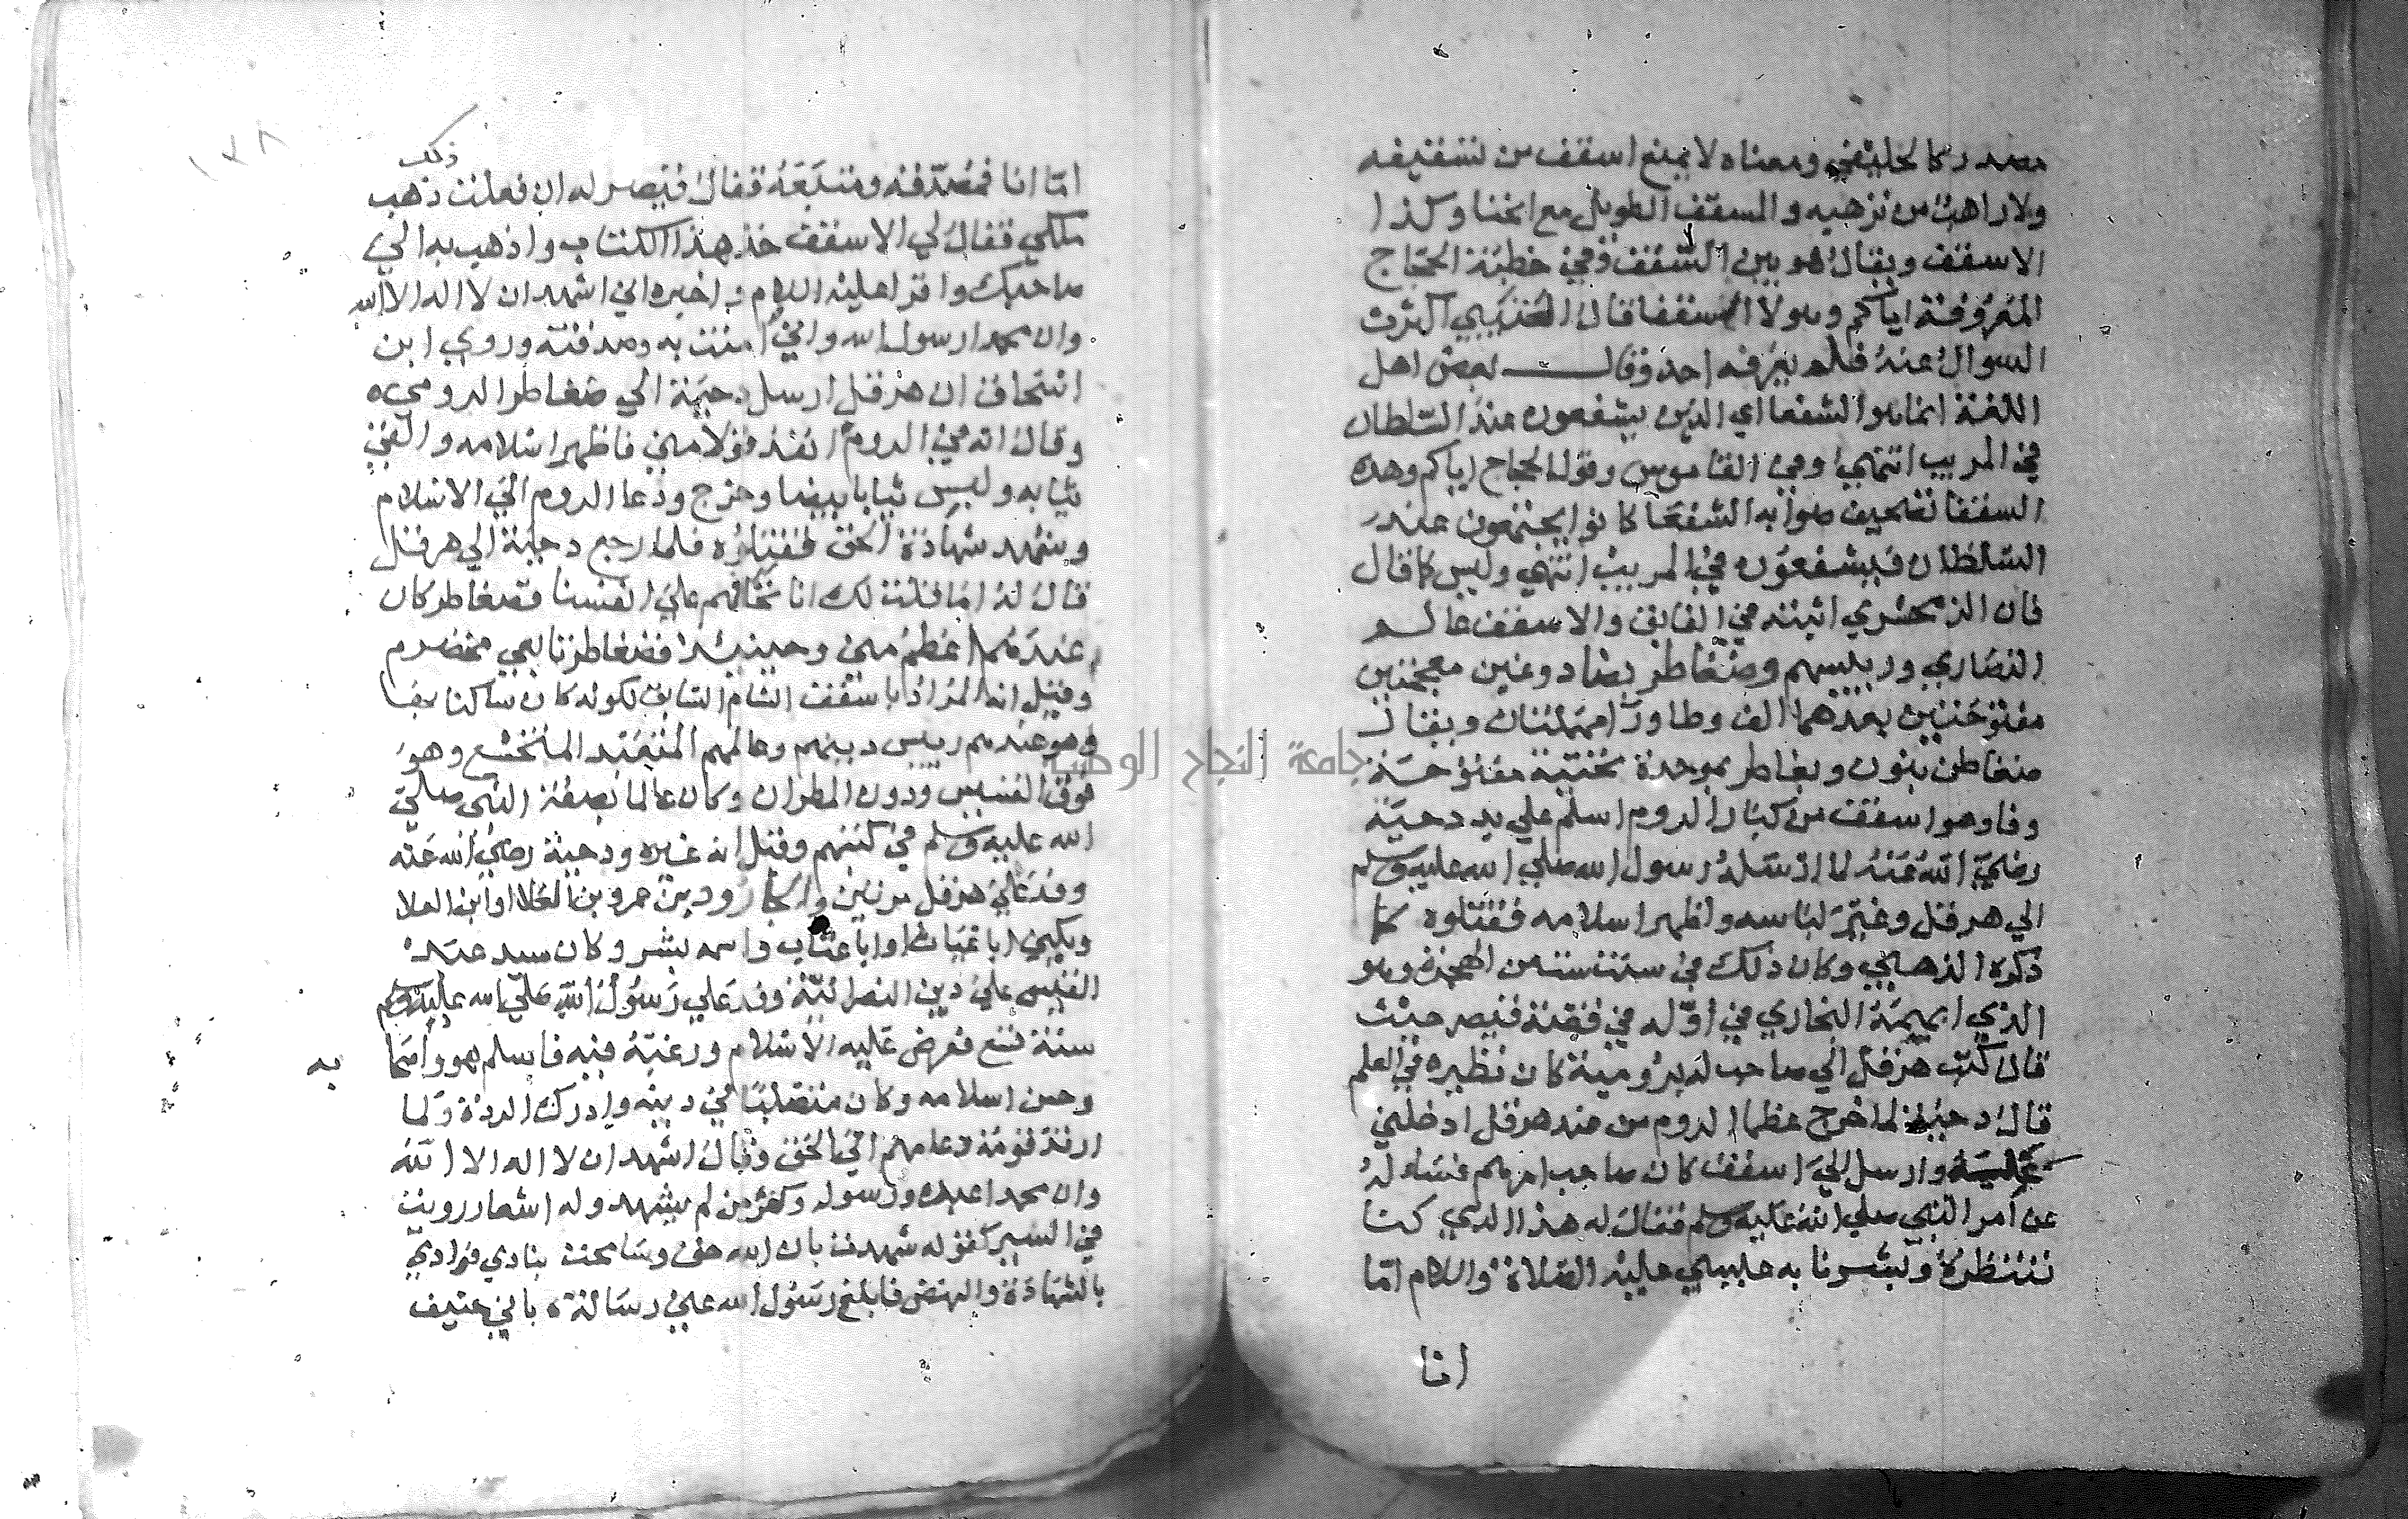 مصدر كالخليفي ومعناه لا يمنع اسقف من تسقيفه
ولا راهب من ترهبه والمسقف الطويل مع انحنا وكذا
الاسقف ويقال هو بين السقف وفي خطبة الحجاج
المعروفة اياكم وهولا السقفا قال القتيبي اكثرت
السوال عنه فلم يعرفه احد وقال بعض اهل
اللغة انما هو الشفعا اي الذين يشفعون عند السلطان
في المريب انتهي وفي القاموس وقول الحجاج اياكم وهذه
السقفا تصحيف صوابه الشفعا كانوا يجتمعون عند
السلطان فيشفعون في المريب انتهي وليس كما قال
فان الزمخشري اثبته في الفايق والاسقف عالم
النصاري وريسهم وضغاطر بضاد وغين معجمتين
مفتوحتين بعدهما الف وطا ورا مهملتان ويقال
ضغاطن بنون وبغاطر بموحدة تحتية مفتوحة
وفا وهو اسقف من كبار الروم اسلم علي يد دحية
رضي الله عنه لما ارسله رسول الله صلي الله عليه وسلم
الي هرقل وغير لباسه واظهر اسلامه فقتلوه كما
ذكره الذهبي وكان ذلك في سنة ست من الهجرة وهو
الذي ابهمه البخاري في اوله في قصة قيصر حيث
قال كتب هرقل الي صاحب له برومية كان نظيره في العلم
قال دحية لما خرج عظما الروم من عند هرقل ادخلني
عليه وارسل الي اسقف كان صاحب امرهم فساله
عن امر النبي صلي الله عليه وسلم فقال له هذا الذي كنا
ننتظره وبشرنا به عيسي عليه الصلاة والسلام اما
انا
ذلك
اما انا فمصدقه ومتبعه فقال قيصر له ان فعلت ذهب
ملكي فقال لي الاسقف خذ هذا الكتاب واذهب به الي
صاحبك واقرا عليه السلام واخبره اني اشهد ان لا اله الا الله
وان محمدا رسول الله واني امنت به وصدقته وروي ابن
اسحاق ان هرقل ارسل دحية الي ضغاطر الرومي
وقال انه في الروم انفذ قولا مني فاظهر اسلامه والقي
ثيابه ولبس ثيابا بيضا وخرج ودعا الروم الي الاسلام
وشهد شهادة الحق فقتلوه فلما رجع دحية الي هرقل
قال له اما قلت لك انا نخافهم علي انفسنا فضغاطر كان
عندهم اعظم مني وحينيذ فضغاطر تابعي مخضرم
وقيل انه المراد باسقف الشام السابق لكونه كان ساكنا بها
وهو عندهم رييس دينهم وعالمهم المتعبد المتخشع وهو
فوق القسيس ودون المطران وكان عالما بصفة النبي صلي
الله عليه وسلم في كتبهم وقيل انه غيره ودحية رضي الله عنه
وفد علي هرقل مرتين والجارود بن عمرو بن العلا او ابن العلا
ويكني ابا غياث او ابا عتاب واسمه بشر وكان سيد عبد
القيس علي دين النصرانية وفد علي رسول الله صلي الله عليه وسلم
سنة تسع فعرض عليه الاسلام ورغبه فيه فاسلم هو واصحا
به
وحسن اسلامه وكان متصلبا في دينه وادرك الردة ولما
ارتد قومه دعاهم الي الحق وقال اشهد ان لا اله الا الله
وان محمدا عبده ورسوله وكفر من لم يشهد وله اشعار رويت
في السير كقوله شهدت بان الله حق وسامحت بنادي فوادي
بالشهادة والنهض فابلغ رسول الله عني رسالة باني حنيف